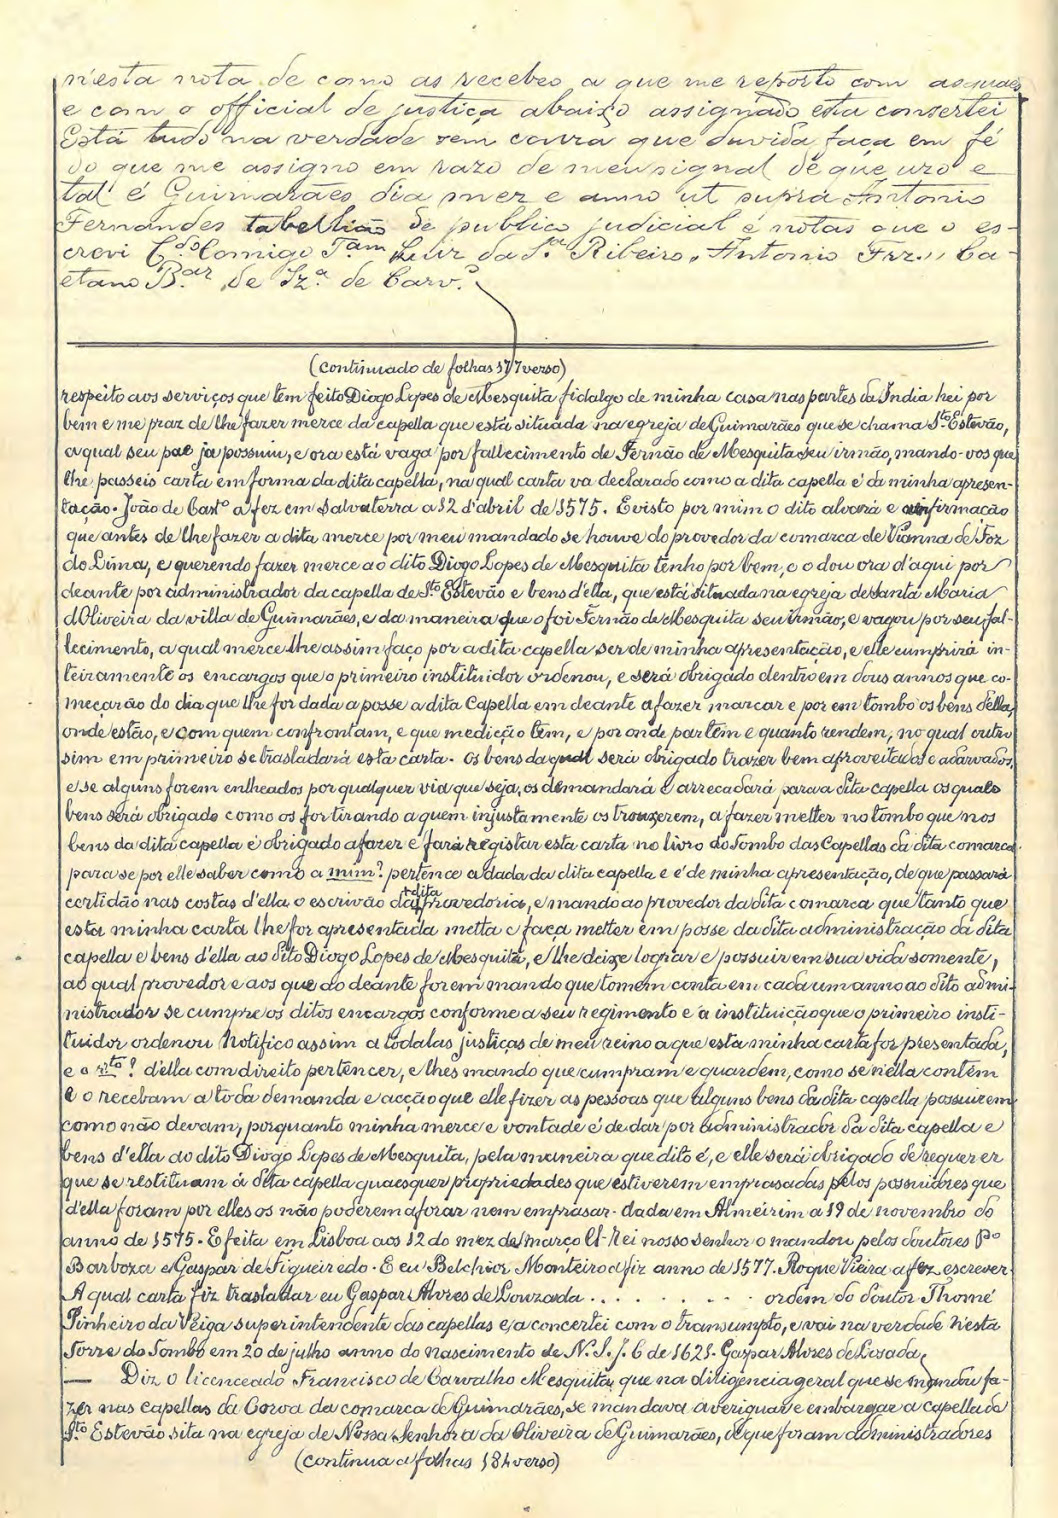 n'esta nota de como as recebeo a que me reporto com as quaes
e com o official de justiça abaixo assignado esta consertei
Está tudo na verdade sem couza que duvida faça em fé
do que me assigno em razo de meu signal de que uzo e
tal é Guimarães dia mez e anno ut supra Antonio
Fernandes tabellião de publico judicial e notas que o es-
crevi C.do Comigo T.am Luiz da S.a Ribeiro, Antonio Frz., Ca-
etano B.ar de Sz.a de Carv.o
(continuado de folhas 177 verso)
respeito aos serviços que tem feito Diogo Lopes de Mesquita fidalgo de minha casa nas partes da India hei por
bem e me praz de lhe fazer merce da capella que está situada na egreja de Guimarães que se chama S.to Estevão,
a qual seu pae já possuiu, e ora está vaga por fallecimento de Fernão de Mesquita seu irmão, mando-vos que
lhe passeis carta em forma da dita capella, na qual carta va declarado como a dita capella é da minha apresen-
tação. João de Cast.o a fez em Salvaterra a 12 d'abril de 1575. E visto por mim o dito alvará e informação
que antes de lhe fazer a dita merce por meu mandado se houve do provedor da comarca de Vianna de Foz
do Lima, e querendo fazer merce ao dito Diogo Lopes de Mesquita tenho por bem, e o dou ora d'aqui por
deante por administrador da capella de S.to Estevão e bens d'ella, que está situada na egreja de Santa Maria
d'Oliveira da villa de Guimarães, e da maneira que o foi Fernão de Mesquita seu irmão, e vagou por seu fal-
lecimento, a qual merce lhe assim faço por a dita capella ser de minha apresentação, e elle cumprirá in-
teiramente os encargos que o primeiro instituidor ordenou, e será obrigado dentro em dous annos que co-
meçarão do dia que lhe for dada a posse a dita Capella em deante a fazer marcar e por em tombo os bens d'ella,
onde estão, e com quem confrontam, e que medição tem, e por onde partem e quanto rendem, no qual outro
sim em primeiro se trasladará esta carta. Os bens da qual será obrigado trazer bem aproveitados e adarvados,
e se alguns forem enlheados por qualquer via que seja, os demandará e arrecadará para a dita capella os quaes
bens será obrigado como os for tirando a quem injustamente os trouxerem, a fazer metter no tombo que nos
bens da dita capella é obrigado a fazer e fará registar esta carta no livro do Tombo das Capellas da dita comarca
para se por elle saber como a mim? pertence a dada da dita capella e é de minha apresentação, de que passará
certidão nas costas d'ella o escrivão da dita provedoria, e mando ao provedor da dita comarca que tanto que
esta minha carta lhe for apresentada metta e faça metter em posse da dita administração da dita
capella e bens d'ella ao dito Diogo Lopes de Mesquita, e lhe deixe lograr e possuir em sua vida somente,
ao qual provedor e aos que ao deante forem mando que tomem conta em cada um anno ao dito admi-
nistrador se cumpre os ditos encargos conforme a seu regimento e á instituição que o primeiro insti-
tuidor ordenou Notifico assim a todalas justiças de meu reino a que esta minha carta for presentada,
e o n.to? d'ella com direito pertencer, e lhes mando que cumpram e guardem, como se n'ella contem
e o recebam a toda demanda e acção que elle fizer as pessoas que alguns bens da dita capella possuirem
como não devam, porquanto minha merce e vontade é de dar por administrador da dita capella e
bens d'ella ao dito Diogo Lopes de Mesquita, pela maneira que dito é, e elle será obrigado de requerer
que se restituam á dita capella quaesquer propriedades que estiverem emprasadas pelos possuidores que
d'ella foram por elles os não poderem aforar nem emprasar. dada em Almeirim a 19 de novembro do
anno de 1575. E feita em Lisboa aos 12 do mez de março El-Rei nosso senhor o mandou pelos doutores P.o
Barboza e Gaspar de Figueiredo. E eu Belchior Monteiro a fiz anno de 1577. Roque Vieira a fez escrever.
A qual carta fiz trasladar eu Gaspar Alvres de Louzada . . . . . . . . . . ordem do doutor Thomé
Pinheiro da Veiga superintendente das capellas e a concertei com o transumpto, e vai na verdade N'esta
Torre do Tombo em 20 de julho anno do nascimento de N. S. J. C. de 1621. Gaspar Alvres de Losada
— Diz o licenceado Francisco de Carvalho Mesquita, que na diligencia geral que se mandou fa-
zer nas capellas da Coroa da comarca de Guimarães, se mandava averiguar e embargar a capella de
S.to Estevão sita na egreja de Nossa Senhora da Oliveira de Guimarães, de que foram administradores
(continua a folhas 184 verso)